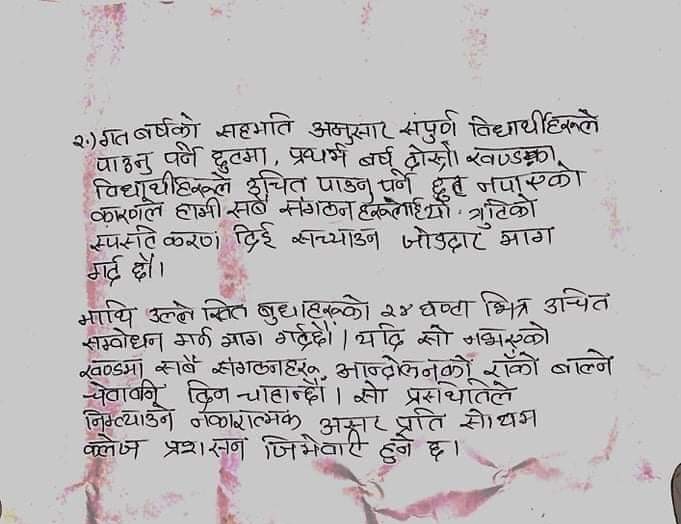 २.) गत बर्षको सहमति अनुसार संपुर्ण विधार्थीहरुले
पाउनु पर्ने छुटमा, प्रथम बर्ष दोस्रो खण्डका
विधार्थीहरुले उचित पाउनु पर्ने छुट नपाएको
कारणले हामी सबै संगठन हरुले त्रुटिको
स्पस्ति करण दिई सच्याउन जोडदार माग
गर्द छौ।
माथि उल्ले खित बुधाहरुको २४ घण्टा भित्र उचित
सम्बोधन गर्न माग गर्दछौं। यदि सो नभएको
खण्डमा सबै संगठनहरू आन्दोलनको राँको बाल्ने
चेतावनी दिन चाहान्छौं। सो प्रस्थितिले
निम्त्याउने नकारात्मक असर प्रति
कलेज प्रशासन जिम्मेवार हुने छ।